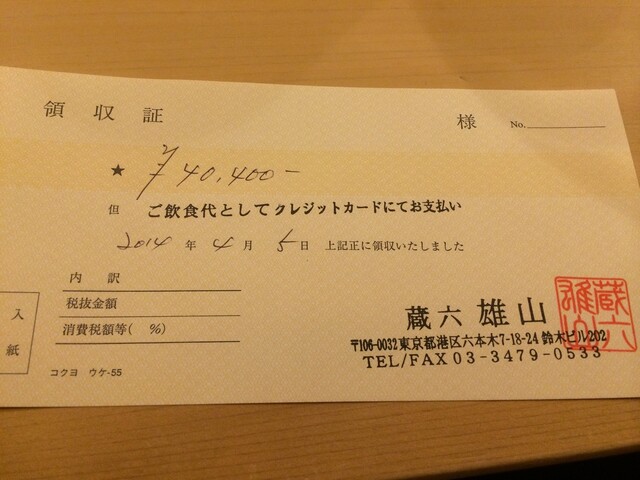 領収証
様 No.
★ ¥40,400-
但 ご飲食代としてクレジットカードにてお支払い
2014年4月5日 上記正に領収いたしました
内訳
税抜金額
消費税額等( %)
入紙
コクヨ ウケ-55
蔵六雄山
〒106-0032東京都港区六本木7-18-24 鈴木ビル202
TEL/FAX 03-3479-0533
蔵六雄山